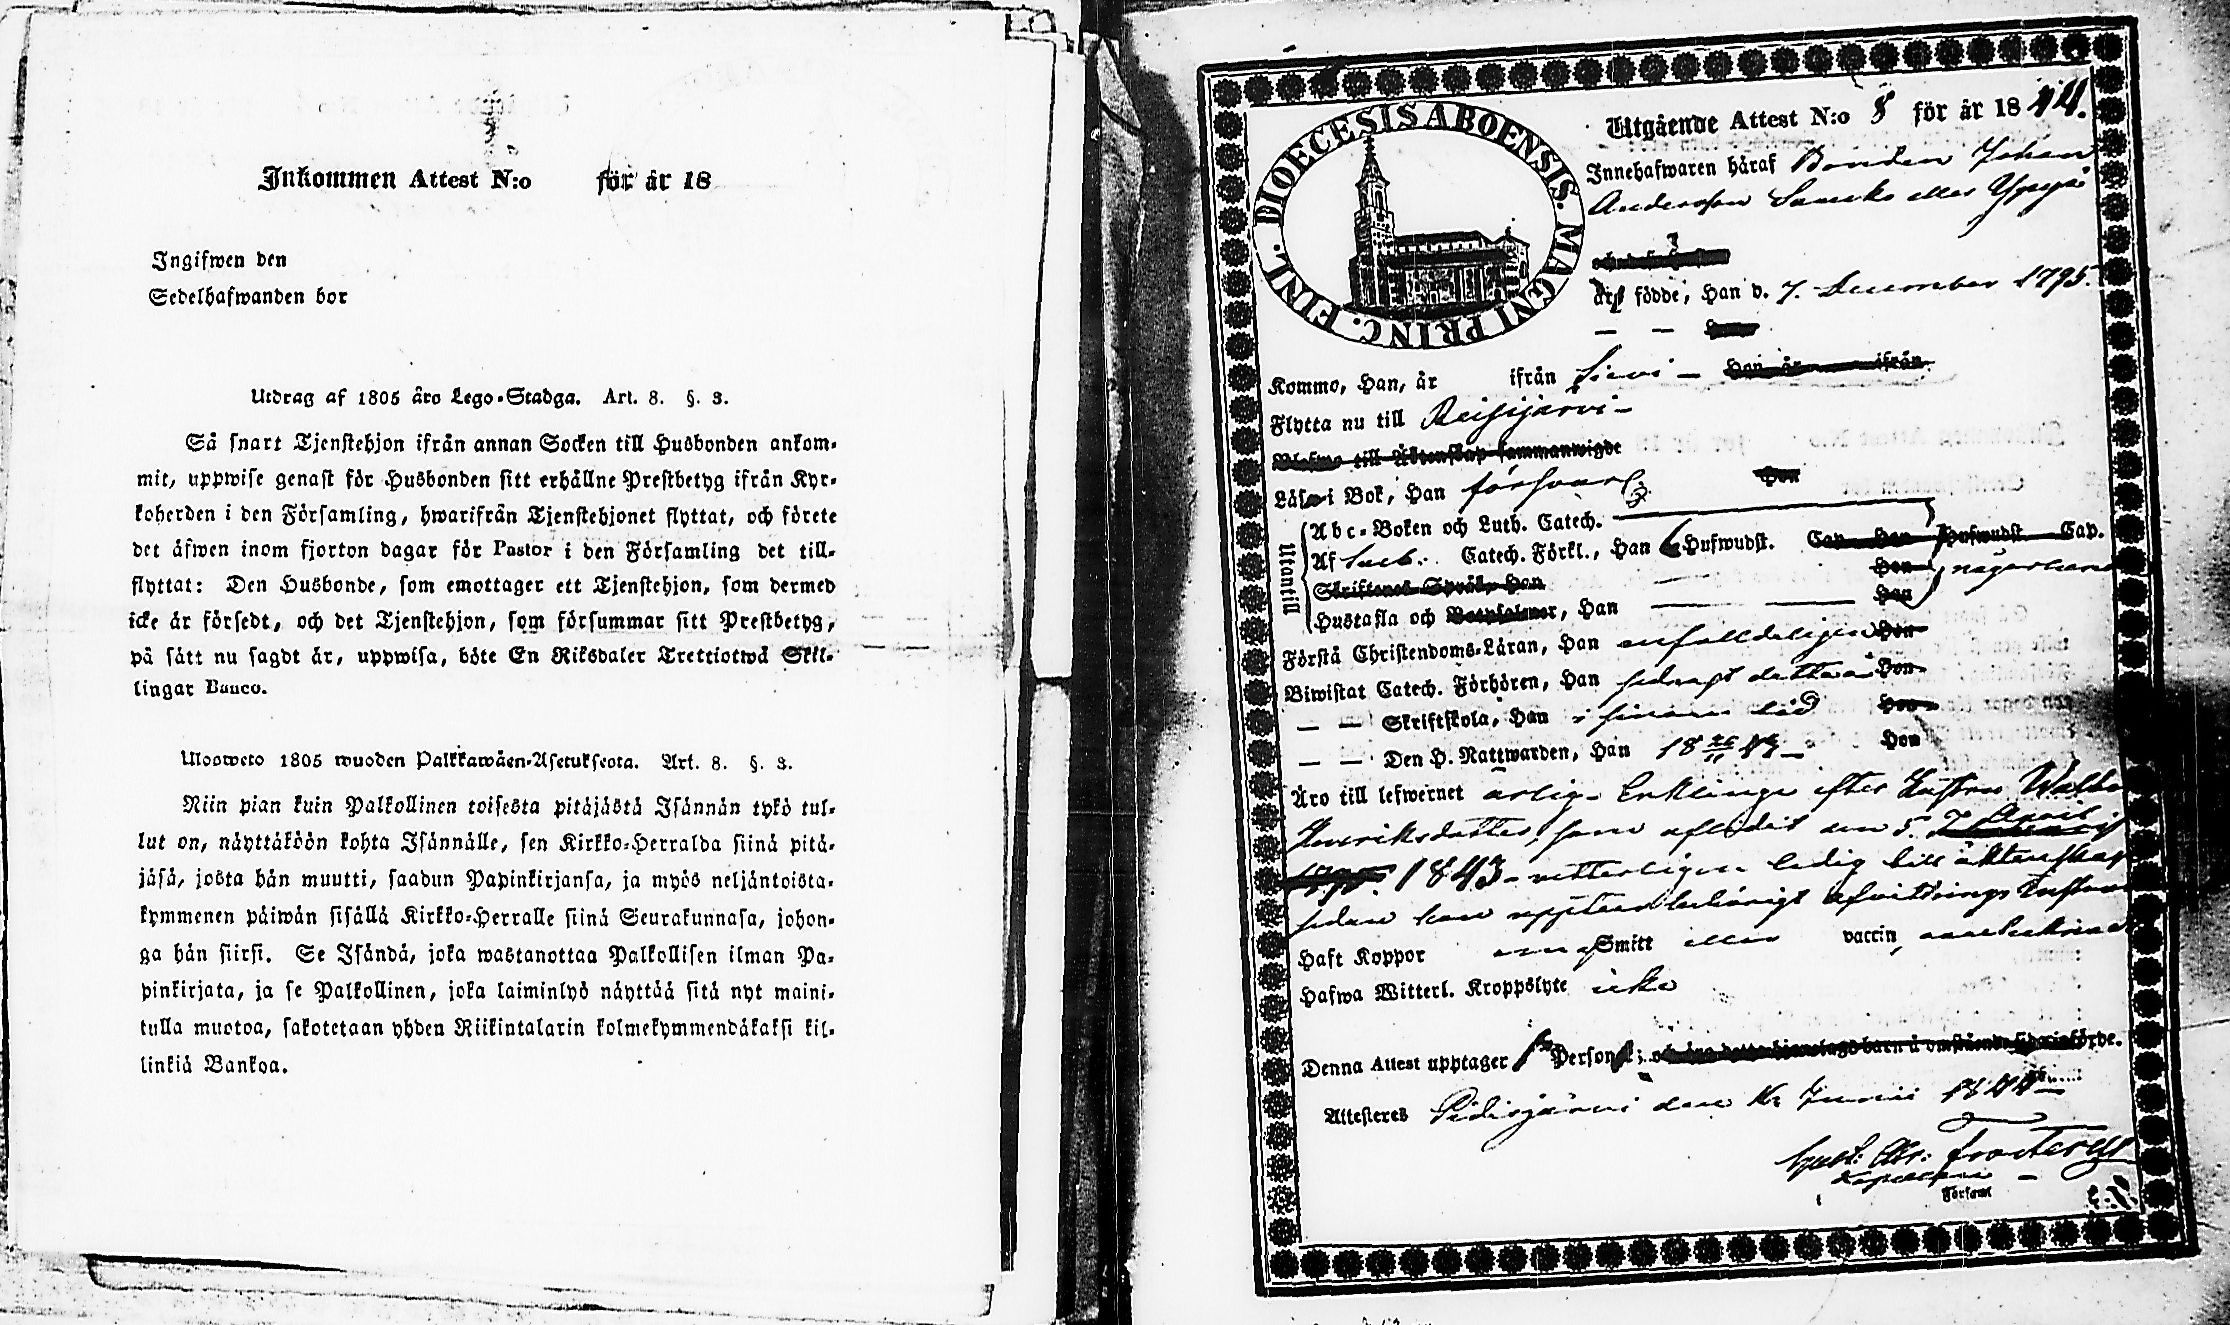 Inkommen Attest N:o för år 18
Ingifwen den
Sedelhafwanden bor
Utdrag af 1805 åro Lego-Stadga. Art. 8. §. 3.
Så snart Tjenstehjon ifrån annan Socken till Husbonden ankom-
mit, uppwise genast för Husbonden sitt erhållne Prestbetyg ifrån Kyr-
koherden i den Församling, hwarifrån Tjenstehjonet flyttat, och förete
det äfwen inom fjorton dagar för Pastor i den Församling det till-
flyttat: Den Husbonde, som emottager ett Tjenstehjon, som dermed
icke är försedt, och det Tjenstehjon, som försummar sitt Prestbetyg,
på sätt nu sagdt är, uppwisa, böte En Riksdaler Trettiotwå Skil-
lingar Banco.
Ulosweto 1805 wuoden Palkkawäen-Asetuksesta. Art. 8. §. 3.
Niin pian kuin Palkollinen toisesta pitäjästä Isännän tykö tul-
lut on, näyttäköön kohta Isännälle, sen Kirkko-Herralda siinä pitä-
jäsä, josta hän muutti, saadun Papinkirjansa, ja myös neljäntoista-
kymmenen päiwän sisällä Kirkko-Herralle siinä Seurakunnasa, johon-
ga hän siirsi. Se Isändä, joka wastanottaa Palkollisen ilman Pa-
pinkirjata, ja se Palkollinen, joka laiminlyö näyttää sitä nyt maini-
tulla muotoa, sakotetaan yhden Riikintalarin kolmekymmendäkaksi kil-
linkiä Bankoa.
DIOECESIS ABOENSIS. MAGNI PRINC. FINL.
Utgående Attest N:o 8 för år 1844.
Innehafwaren häraf Bonden Johan
Andersson eller
är födde, Han d. 7. December 1795.
Kommo, Han, år ifrån Sievi – Hon år ifrån
Flytta nu till Reisijärvi –
Blefwo till Äktenskap sammanwigde
Läsa i Bok, Han försvarl. Hon
Utantill
Abc-Boken och Luth. Catech.
Af Catech. Förkl., Han 6 Hufwudst. Cap. Hon Hufwudst. Cap.
Skriftenes Språk, Han Hon någorlunda
Hustafla och Botpsalmer, Han Hon
Förstå Christendoms-Läran, Han enfalldeligen Hon
Biwistat Catech. Förhören, Han sednast detta år Hon
— — Skriftskola, Han i sinom tid Hon
— — Den H. Nattwarden, Han 18 43 – Hon
Äro till lefwernet ärlig. Enkling efter Hustru
Henriksdotter, som aflidit den 5. April
1843 – vetterligen ledig till äktenskap
sedan han behörigt afvittrings
Haft Koppor Smitt eller vaccin,
Hafwa Witterl. Kroppslyte icke
Denna Attest upptager 1 Person;
Attesteres Pidisjärvi den Junii 1844 –
Frosterus
Kapellan
Församl